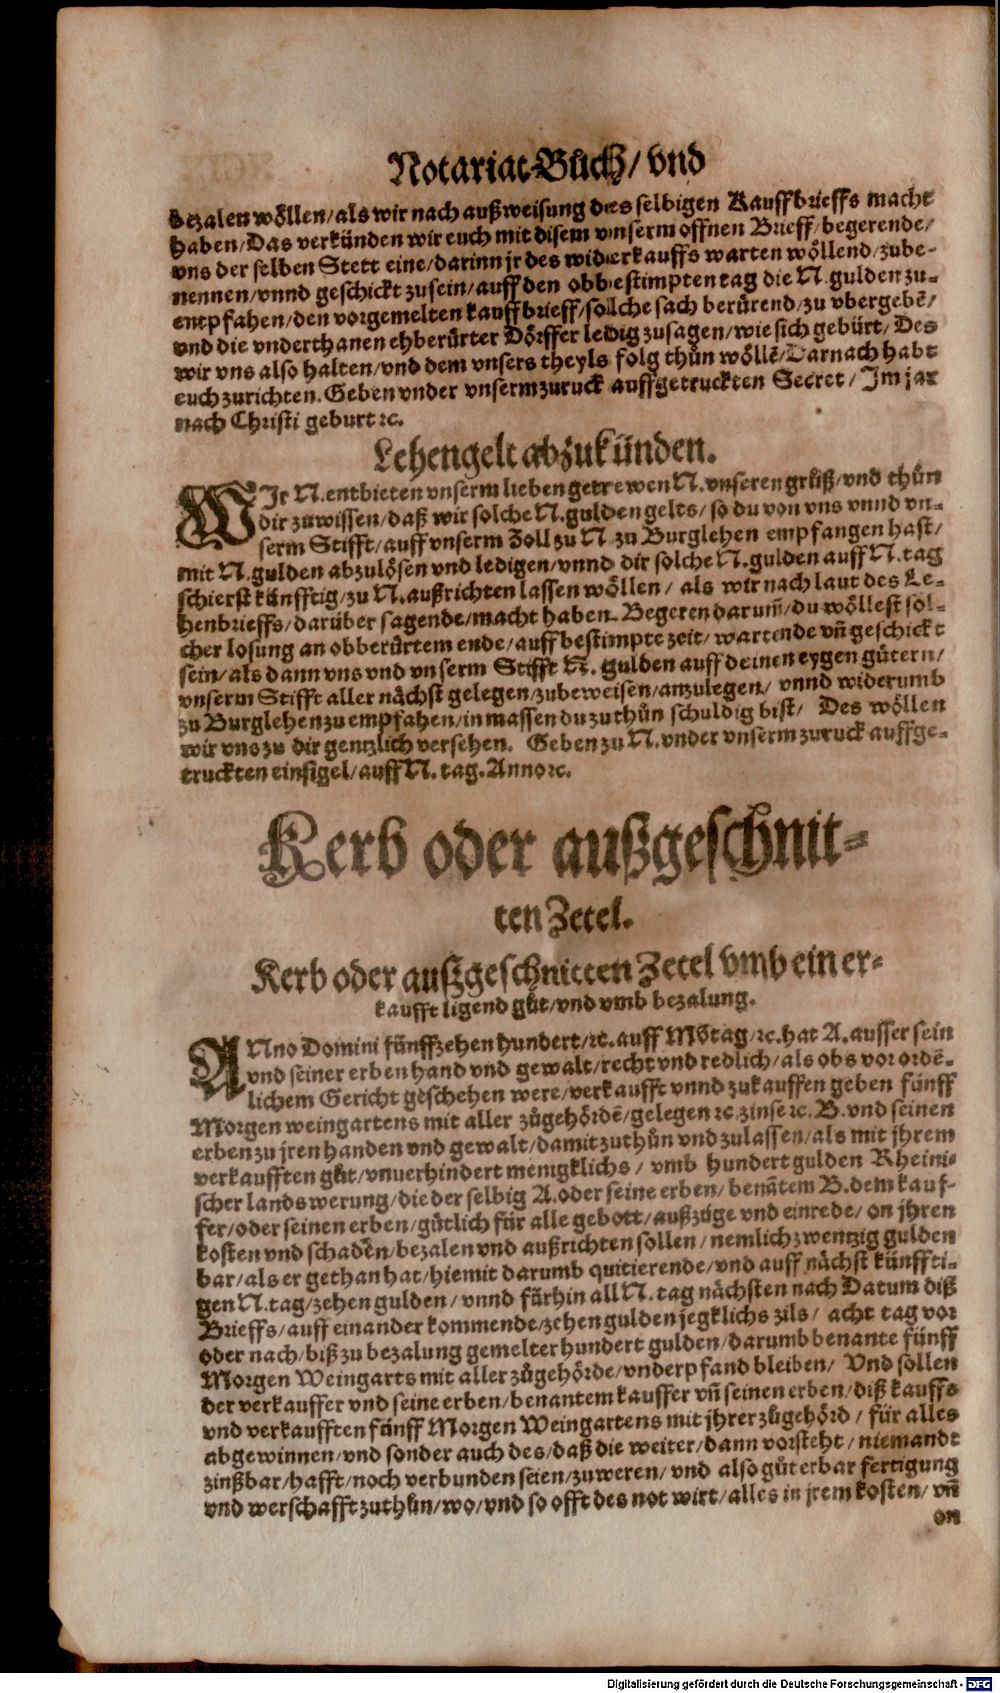 Notariat-Bůch/ vnd
bezalen wöllen/ als wir nach außweisung des selbigen Kauffbrieffs macht
haben/ Das verkünden wir euch mit disem vnserm offnen Brieff/ begerende/
vns der selben Stett eine/ darinn jr des widerkauffs warten wöllend/ zube-
nennen/ vnnd geschickt zusein/ auff den obbestimpten tag die N. gulden zu-
entpfahen/ den vorgemelten kauffbrieff/ solche sach berürend/ zu vbergebẽ/
vnd die vnderthanen ehberürter Dörffer ledig zusagen/ wie sich gebürt/ Des
wir vns also halten/ vnd dem vnsers theyls folg thůn wöllẽ/ Darnach habt
euch zurichten. Geben vnder vnserm zuruck auffgetruckten Secret/ Im jar
nach Christi geburt ꝛc.
Lehengelt abzukünden.
WIr N. entbieten vnserm lieben getrewen N. vnseren grůß/ vnd thůn
dir zuwissen/ daß wir solche N. gulden gelts/ so du von vns vnnd vn-
serm Stifft/ auff vnserm Zoll zu N. zu Burglehen empfangen hast/
mit N. gulden abzulösen vnd ledigen/ vnnd dir solche N. gulden auff N. tag
schierst künfftig/ zu N. außrichten lassen wöllen/ als wir nach laut des Le-
henbrieffs/ darüber sagende/ macht haben. Begeren darum̃/ du wöllest sol-
cher losung an obberürtem ende/ auff bestimpte zeit/ wartende vñ geschickt
sein/ als dann vns vnd vnserm Stifft N. gulden auff deinen eygen gütern/
vnserm Stifft aller nächst gelegen/ zubeweisen/ anzulegen/ vnnd widerumb
zu Burglehen zu empfahen/ in massen du zuthůn schuldig bist/ Des wöllen
wir vns zu dir gentzlich versehen. Geben zu N. vnder vnserm zuruck auffge-
truckten einsigel/ auff N. tag. Anno ꝛc.
Kerb oder außgeschnit-
ten Zetel.
Kerb oder außgeschnitten Zetel vmb ein er-
kaufft ligend gůt/ vnd vmb bezalung.
ANno Domini fünffzehen hundert/ ꝛc. auff Mõtag/ ꝛc. hat A. ausser sein
vnd seiner erben hand vnd gewalt/ recht vnd redlich/ als obs vor ordẽ-
lichem Gericht geschehen were/ verkaufft vnnd zukauffen geben fünff
Morgen weingartens mit aller zůgehördẽ/ gelegen ꝛc. zinse ꝛc. B. vnd seinen
erben zu jren handen vnd gewalt/ damit zuthůn vnd zulassen/ als mit jhrem
verkaufften gůt/ vnuerhindert menigklichs/ vmb hundert gulden Rheini-
scher landswerung/ die der selbig A. oder seine erben/ benãtem B. dem kauf-
fer/ oder seinen erben/ gütlich für alle gebott/ außzüge vnd einrede/ on jhren
kosten vnd schaden/ bezalen vnd außrichten sollen/ nemlich zwentzig gulden
bar/ als er gethan hat/ hiemit darumb quitierende/ vnd auff nächst künffti-
gen N. tag/ zehen gulden/ vnnd fürhin all N. tag nächsten nach Datum diß
Brieffs/ auff einander kommende/ zehen gulden jegklichs zils/ acht tag vor
oder nach/ biß zu bezalung gemelter hundert gulden/ darumb benante fünff
Morgen Weingarts mit aller zůgehörde/ vnderpfand bleiben/ Vnd sollen
der verkauffer vnd seine erben/ benantem kauffer vñ seinen erben/ diß kauffs
vnd verkaufften fünff Morgen Weingartens mit jhrer zůgehörd/ für alles
abgewinnen/ vnd sonder auch des/ daß die weiter/ dann vorsteht/ niemandt
zinßbar/ hafft/ noch verbunden seien/ zuweren/ vnd also gůt erbar fertigung
vnd werschafft zuthůn/ wo/ vnd so offt des not wirt/ alles in jrem kosten/ vñ
on
Digitalisierung gefördert durch die Deutsche Forschungsgemeinschaft - DFG